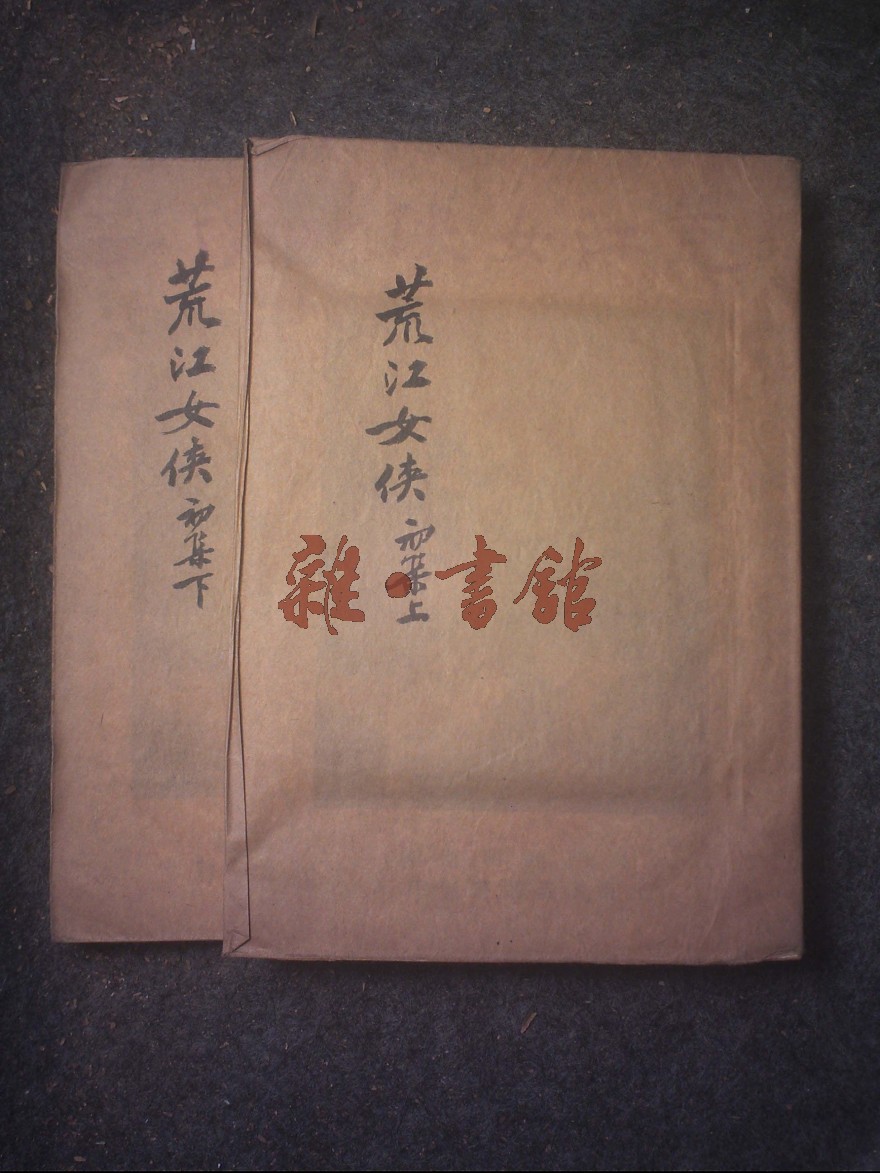 荒江女侠初集上
荒江女侠初集下
雜·書館